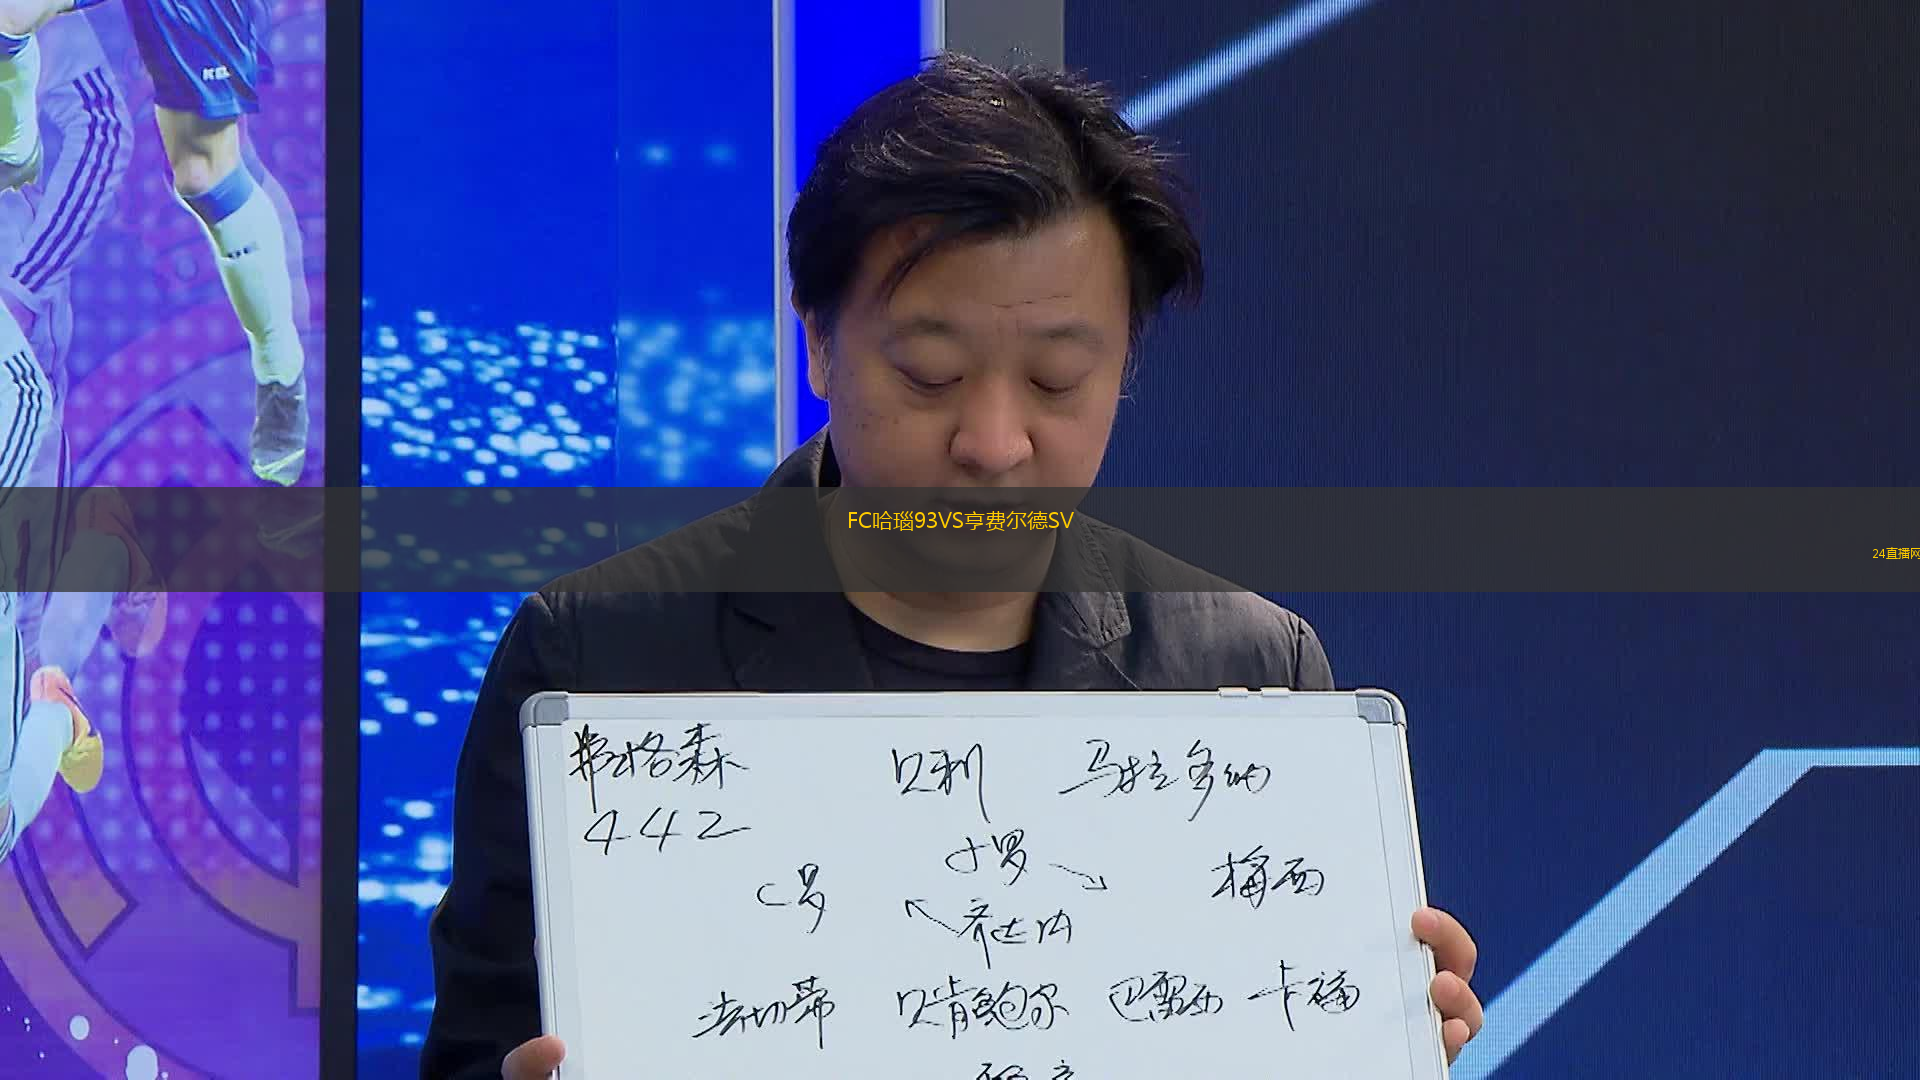 FC哈瑙93VS亨费尔德SV
24直播网
弗格森 贝利 马拉多纳
442
小罗
C罗 梅西
齐达内
法切蒂 贝肯鲍尔 巴雷西 卡福